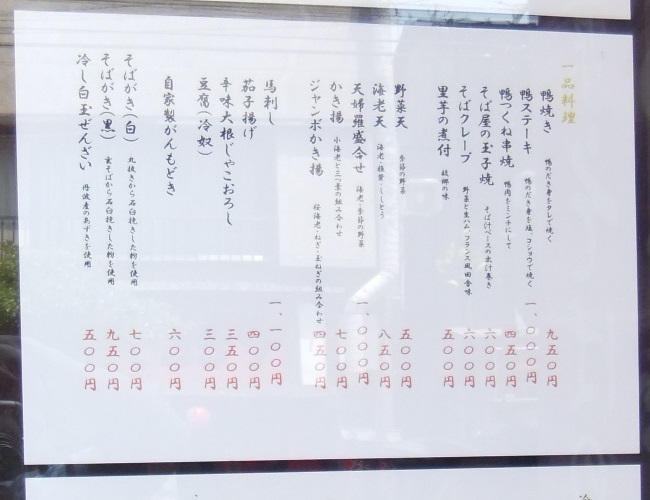 一品料理
鴨焼き 鴨のだき身をタレで焼く 九五〇円
鴨ステーキ 鴨のだき身を塩、コショウで焼く 一、〇〇〇円
鴨つくね串焼 鴨肉をミンチにして 四五〇円
そば屋の玉子焼 そば汁ベースの出汁巻き 六〇〇円
そばクレープ 野菜と生ハム、フランス風田舎味 六〇〇円
里芋の煮付 故郷の味 五〇〇円
野菜天 季節の野菜 五〇〇円
海老天 海老・椎茸・ししとう 八五〇円
天婦羅盛合せ 海老・季節の野菜 一、〇〇〇円
かき揚 小海老と三つ葉の組み合わせ 七〇〇円
ジャンボかき揚 桜海老・ねぎ・玉ねぎの組み合わせ 四五〇円
馬刺し 一、一〇〇円
茄子揚げ 四〇〇円
辛味大根じゃこおろし 三五〇円
豆腐（冷奴） 三〇〇円
自家製がんもどき 六〇〇円
そばがき（白） 丸抜きから石臼挽きした粉を使用 七〇〇円
そばがき（黒） 玄そばから石臼挽きした粉を使用 九五〇円
冷し白玉ぜんざい 丹波産のあずきを使用 五〇〇円